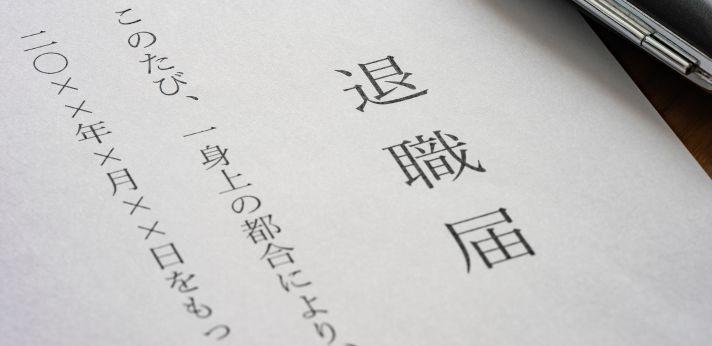 退職届
このたび、一身上の都合により、
二〇××年×月××日をもっ